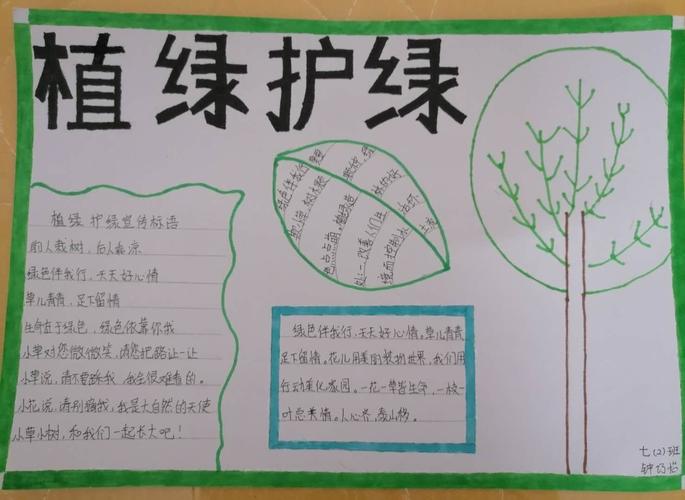 植绿护绿
植绿护绿宣传标语
前人栽树，后人乘凉
绿色伴我行，天天好心情
草儿青青，足下留情
生命在于绿色，绿色依靠你我
小草对您微微笑，请您把路让一让
小草说，请不要踩我，我会很难看的。
小花说，请别摘我，我是大自然的天使
小草小树，和我们一起长大吧！
绿色伴我行
绿色伴我行，天天好心情。草儿青青
足下留情。花儿用美丽装扮世界，我们用
行动美化家园。一花一草皆生命，一枝
一叶总关情。人心齐，泰山移。
七(2)班
钟巧